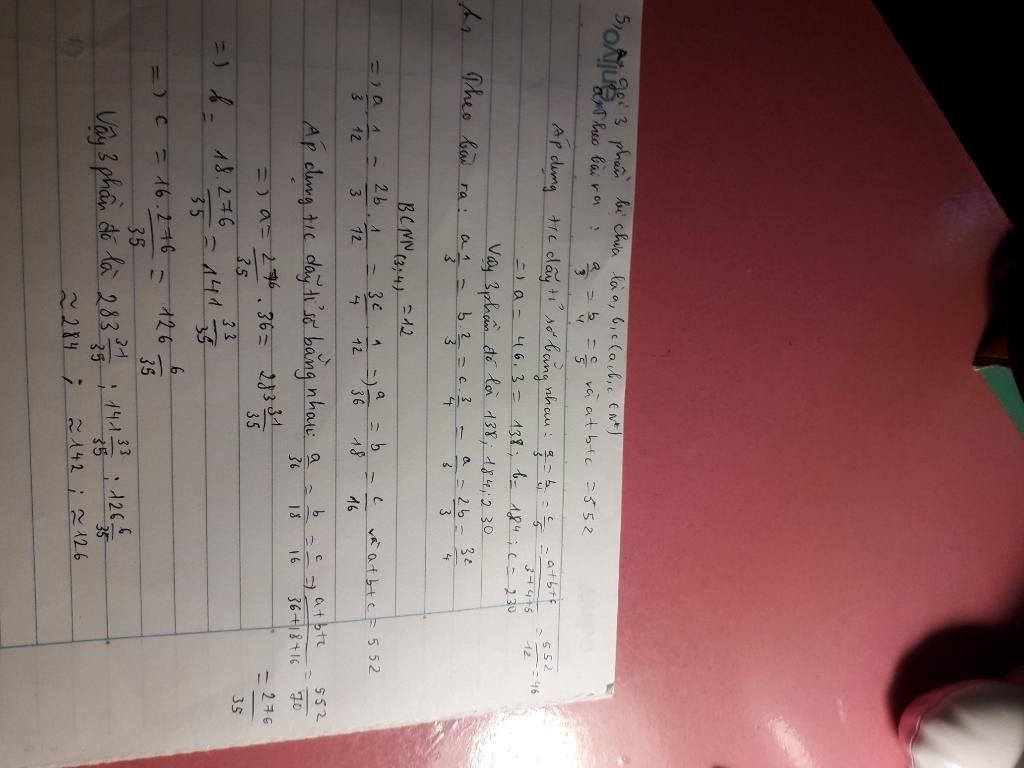 5, a, gọi 3 phần bị chia là a, b, c (a, b, c ∈ N*)
Theo bài ra: a/3 = b/4 = c/5 và a+b+c = 552
Áp dụng t/c dãy tỉ số bằng nhau: a/3 = b/4 = c/5 = a+b+c/3+4+5 = 552/12 = 46
=) a = 46.3 = 138; b = 184; c = 230
Vậy 3 phần đó là 138; 184; 230
b, Theo bài ra: a.1/3 = b.2/3 = c.3/4 = a/3 = 2b/3 = 3c/4
BCNN(3;4) = 12
=) a/3 . 1/12 = 2b/3 . 1/12 = 3c/4 . 1/12 =) a/36 = b/18 = c/16 và a+b+c = 552
Áp dụng t/c dãy tỉ số bằng nhau: a/36 = b/18 = c/16 =) a+b+c/36+18+16 = 552/70
= 276/35
=) a = 276/35 . 36 = 283 31/35
=) b = 18.276/35 = 141 33/35
=) c = 16.276/35 = 126 6/35
Vậy 3 phần đó là 283 31/35; 141 33/35; 126 6/35
≈ 284; ≈ 142; ≈ 126